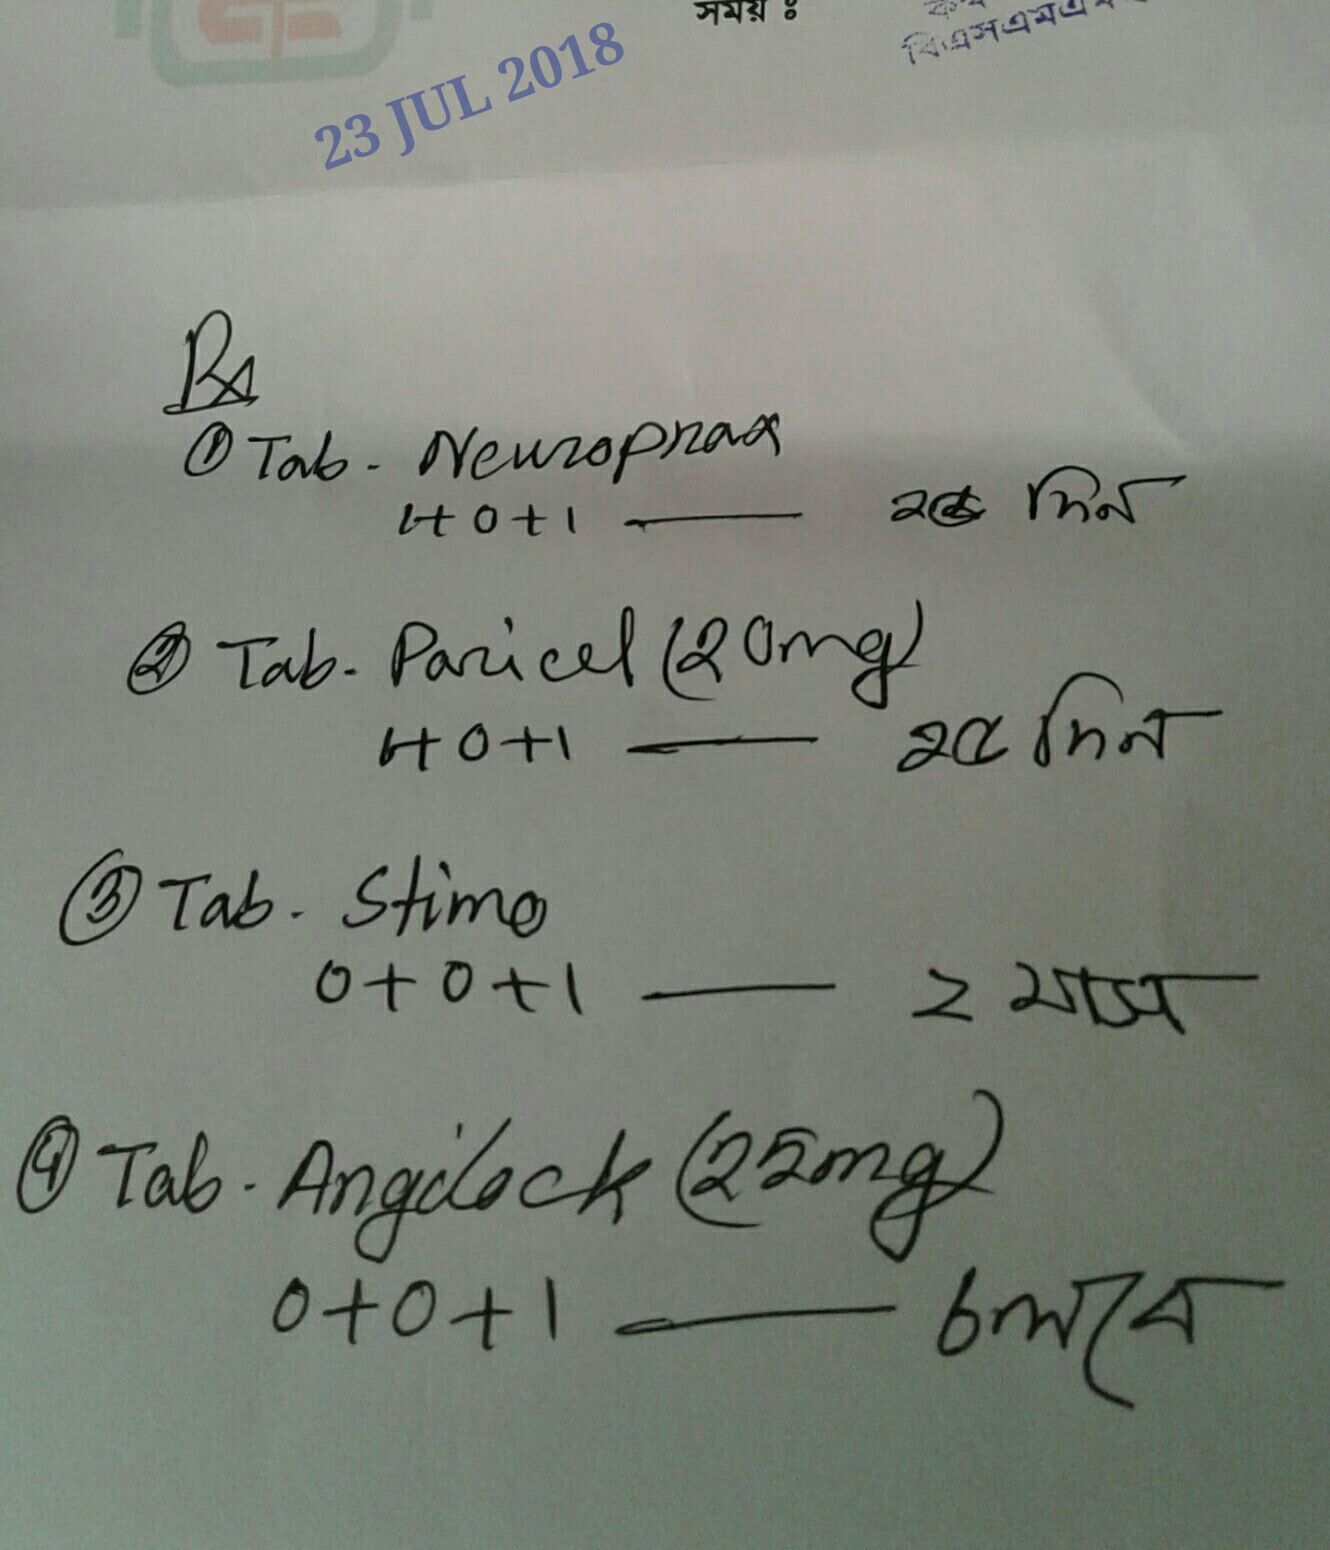 সময় :
23 JUL 2018
Rx
① Tab. Neuroprax
1+0+1 — ২৫ দিন
② Tab. Paricel (20mg)
1+0+1 — ২৫ দিন
③ Tab. Stimo
0+0+1 — ২ মাস
④ Tab. Angilock (25mg)
0+0+1 — চলবে